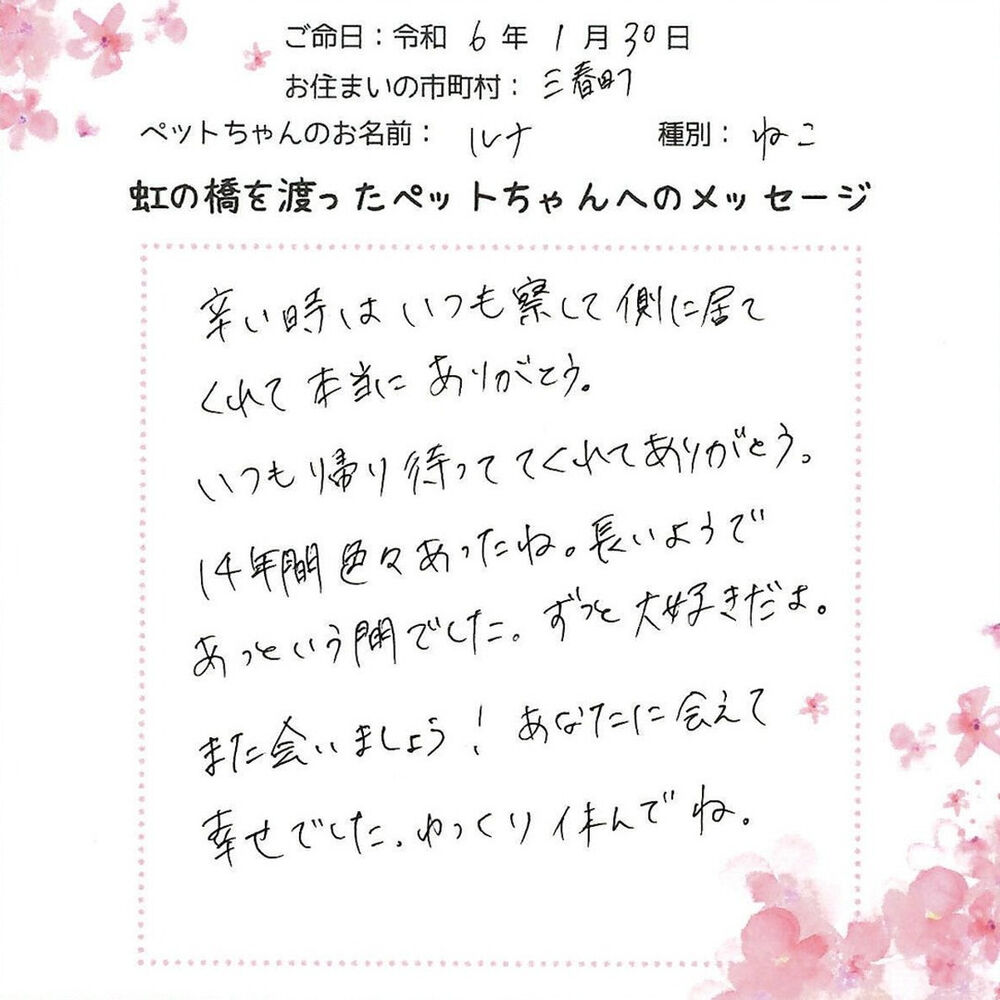 ご命日：令和 6 年 1 月 30 日
お住まいの市町村： 三春町
ペットちゃんのお名前： ルナ 種別： ねこ
虹の橋を渡ったペットちゃんへのメッセージ
辛い時は いつも察して側に居て
くれて本当に ありがとう。
いつも帰り待ってて てくれてありがとう。
14年間色々あったね。長いようで
あっという間でした。ずっと大好きだよ。
また会いましょう！ あなたに会えて
幸せでした。ゆっくり休んでね。